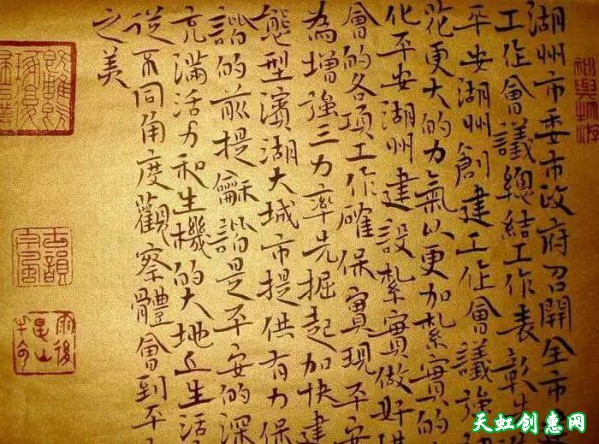 湖州市委市政府召開全市
工作會議總結工作表彰
平安湖州創建工作會議強
花更大的力氣以更加紮實的
化平安湖州建設紮實做好
會的各項工作確保實現平安
為增強三力率先掘起加快建
態型濱湖大城市提供有力保
諧的前提龢諧是平安的深
充滿活力和生機的大地上生活
從不同角度觀察體會到平
之美
天虹创惠网